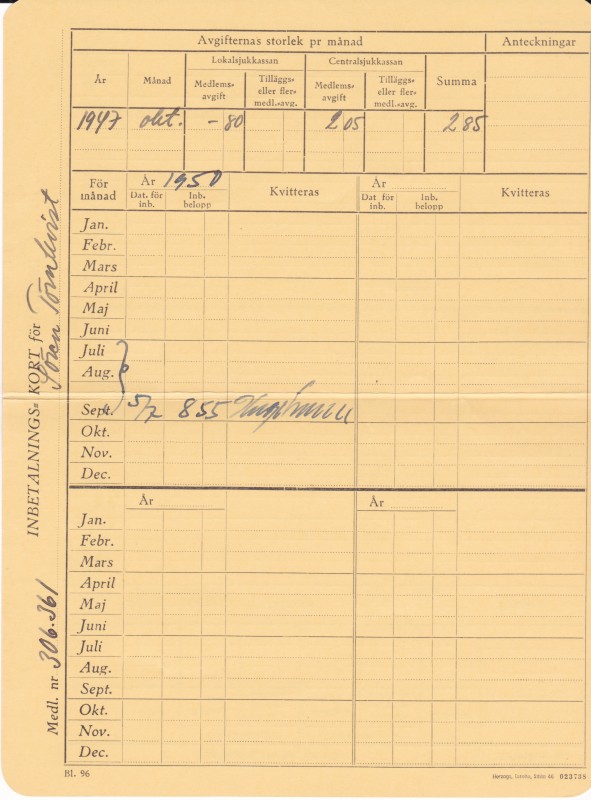 Avgifternas storlek pr månad Anteckningar
År Månad Lokalsjukkassan Centralsjukkassan Summa
Medlems-avgift Tilläggs- eller fler-medl.-avg. Medlems-avgift Tilläggs- eller fler-medl.-avg.
1947 okt. - 80 2 05 2 85
För månad År 1950 Kvitteras År Kvitteras
Dat. för inb. Inb. belopp Dat för inb. Inb. belopp
Jan.
Febr.
Mars
April
Maj
Juni
Juli
Aug.
Sept. 5/7 8 55
Okt.
Nov.
Dec.
År År
Jan.
Febr.
Mars
April
Maj
Juni
Juli
Aug.
Sept.
Okt.
Nov.
Dec.
Medl. nr 306.361 INBETALNINGS-KORT för Sören Törnkvist
Bl. 96
023738